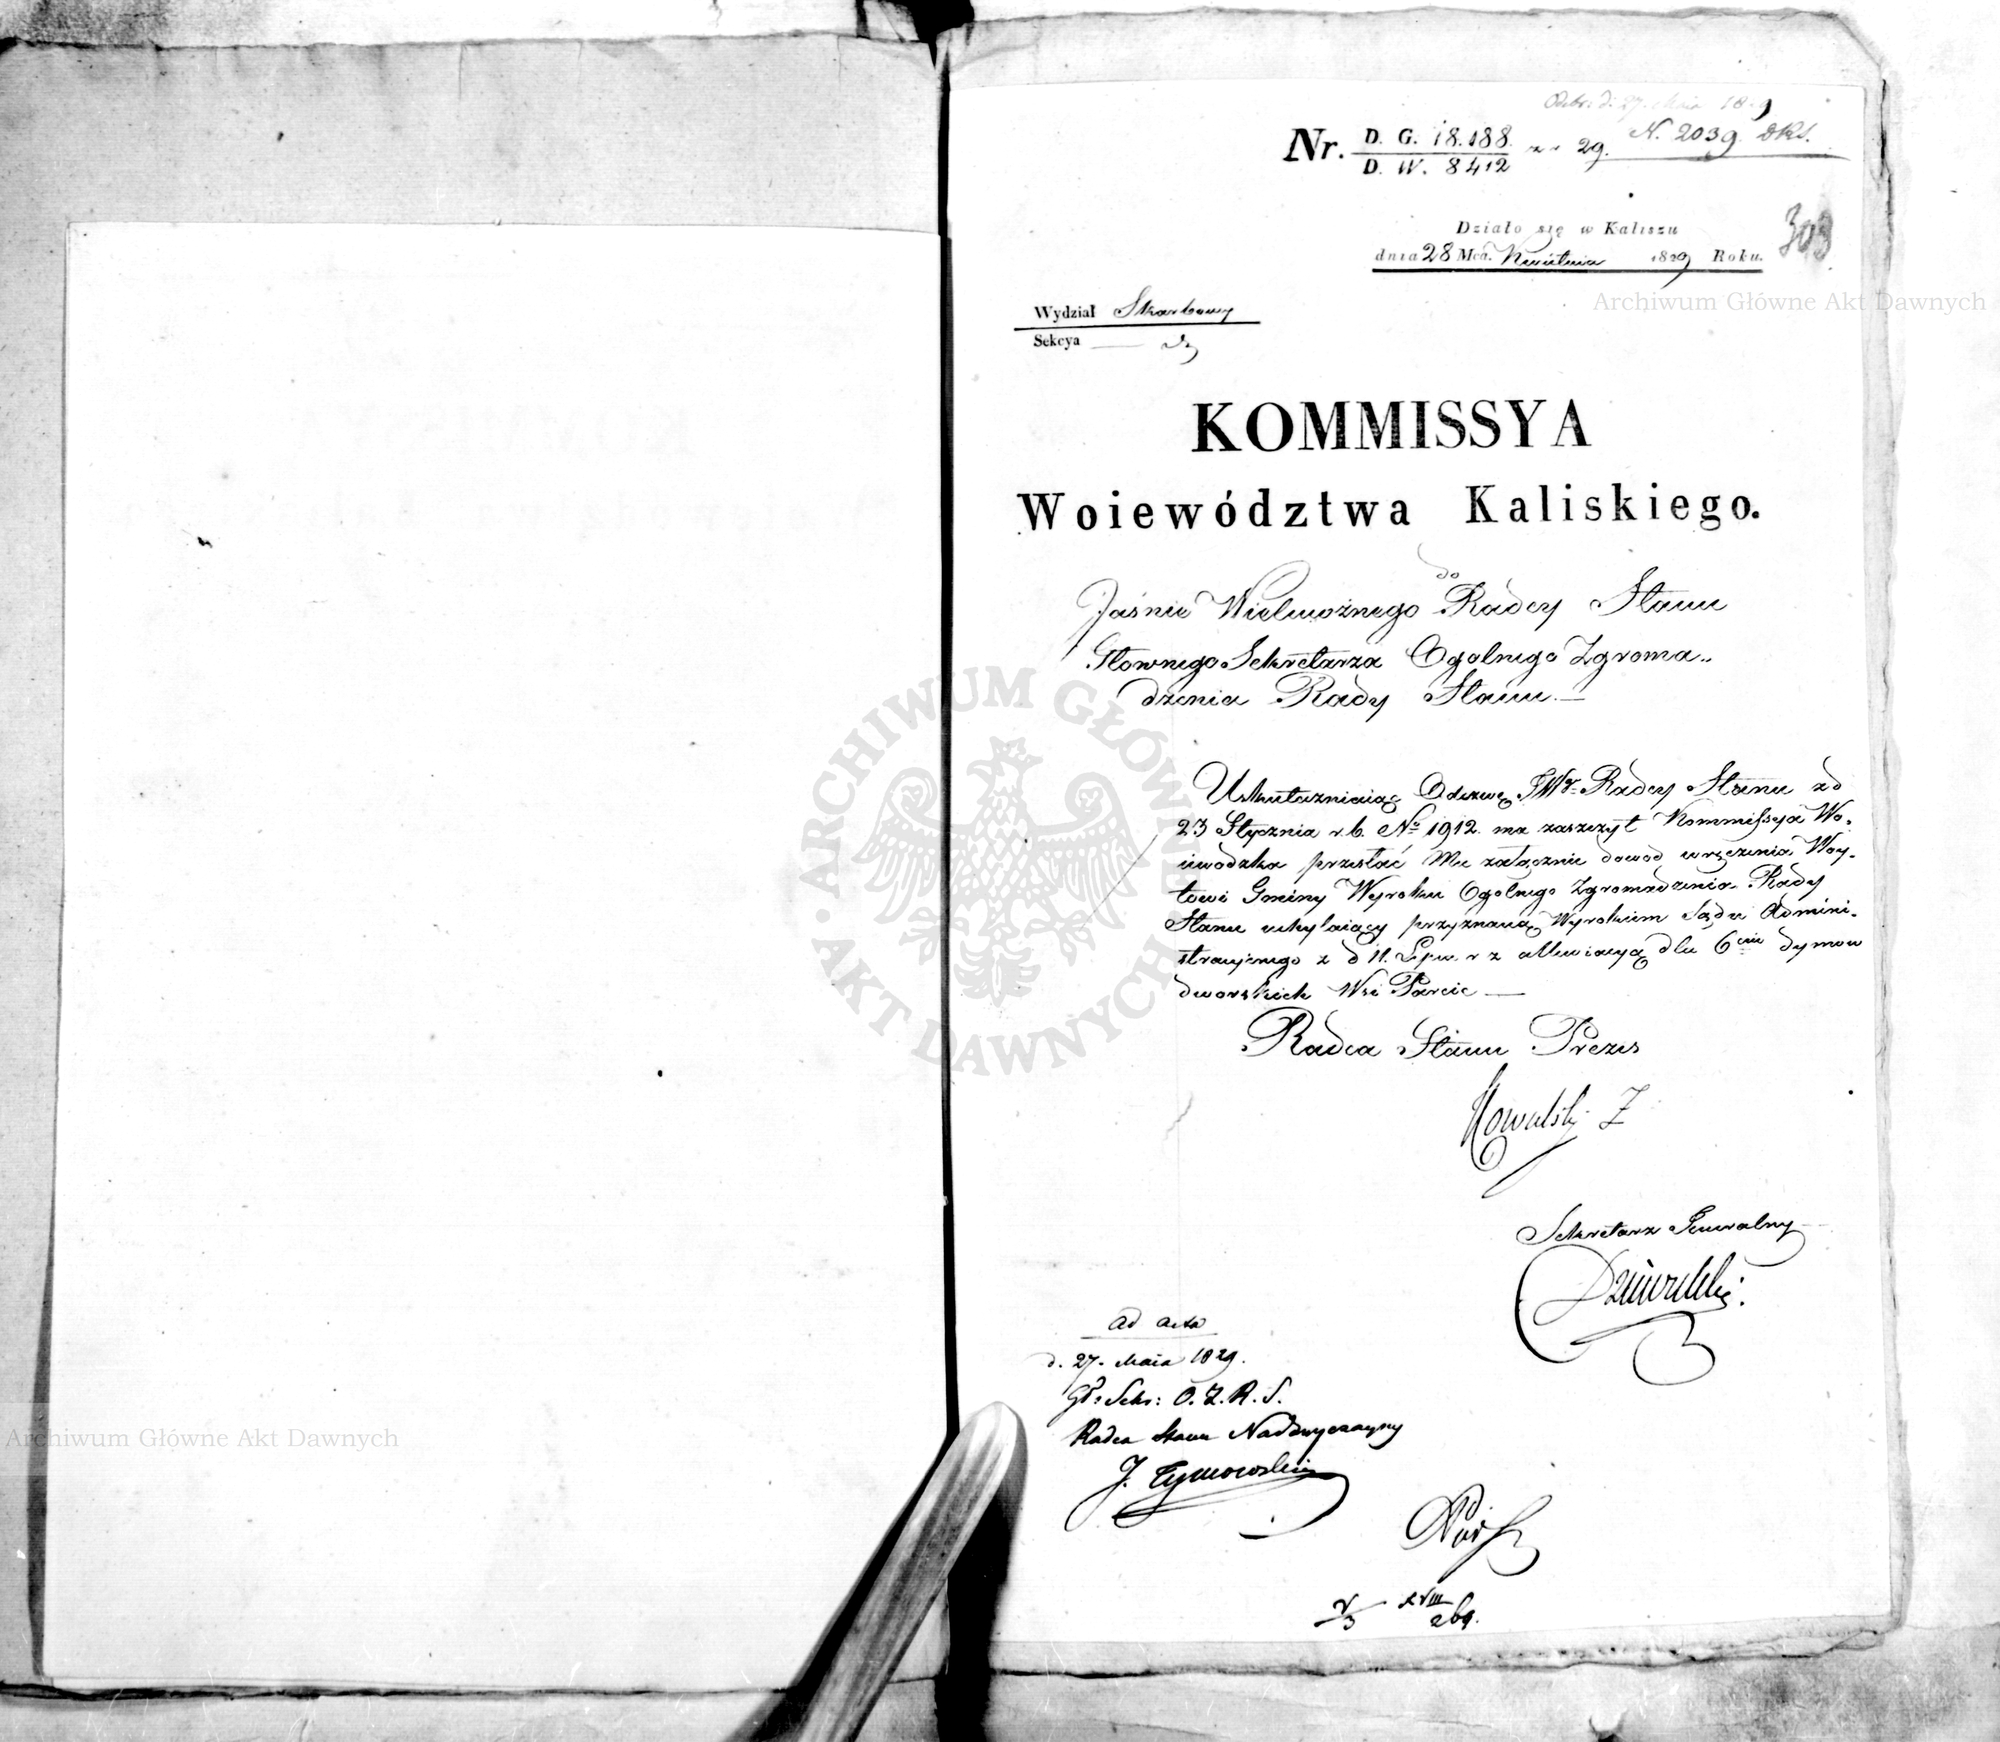 Odebr: d: 27. Maia 1829
Nr. D. G. 18.188. D. W. 8412 29. N. 2039 DKS.
303
Działo się w Kaliszu
dnia 28 Mca. Kwietnia 1829 Roku.
Wydział Skarbowy
Sekcya
KOMMISSYA
Woiewództwa Kaliskiego.
do
Jaśnie Wielmożnego Radcy Stanu
Głownego Sekretarza Ogolnego Zgroma„
dzenia Rady Stanu.—
Uskuteczniaiąc Odezwę JWo Radcy Stanu z d
23 Stycznia r. b. No 1912. ma zaszczyt Kommissya Wo„
iewodzka przesłać Mu załącznie dowod wręczenia Woy„
towi Gminy Wyroku Ogolnego Zgromadzenia Rady
Stanu uchylaiący przyznaną Wyrokiem Sądu Admini„
stracyjnego z d 11. Lipca r z allewiacyą dla 6ciu dymow
dworskich Wsi Parcic —
Radca Stanu Prezes
Kowalski Z
Sekretarz Generalny
ad acta
d. 27. Maia 1829.
Gł: Sekr: O. Z. R. S.
Radca Stanu Nadzwyczayny
J. Tymowski
XVIII
269.
Archiwum Główne Akt Dawnych
Archiwum Główne Akt Dawnych
ARCHIWUM GŁÓWNE · AKT DAWNYCH